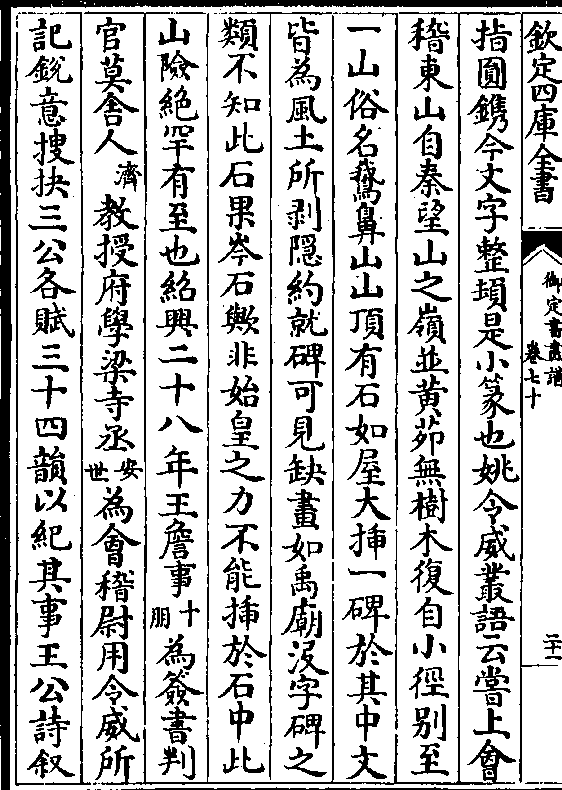 欽定四庫全書
御定書畫譜
卷七十
二十一
指圓鐫今文字整頓是小篆也姚令威叢語云嘗上會
稽東山自秦望山之嶺並黃茆無樹木復自小徑别至
一山俗名鵝鼻山山頂有石如屋大揷一碑於其中文
皆為風土所剥隱約就碑可見缺畫如禹廟沒字碑之
類不知此石果岑石歟非始皇之力不能揷於石中此
山險絶罕有至也紹興二十八年王詹事十朋為簽書判
官莫舍人濟教授府學梁寺丞安世為會稽尉用令威所
記銳意搜抉三公各賦三十四韻以紀其事王公詩叙